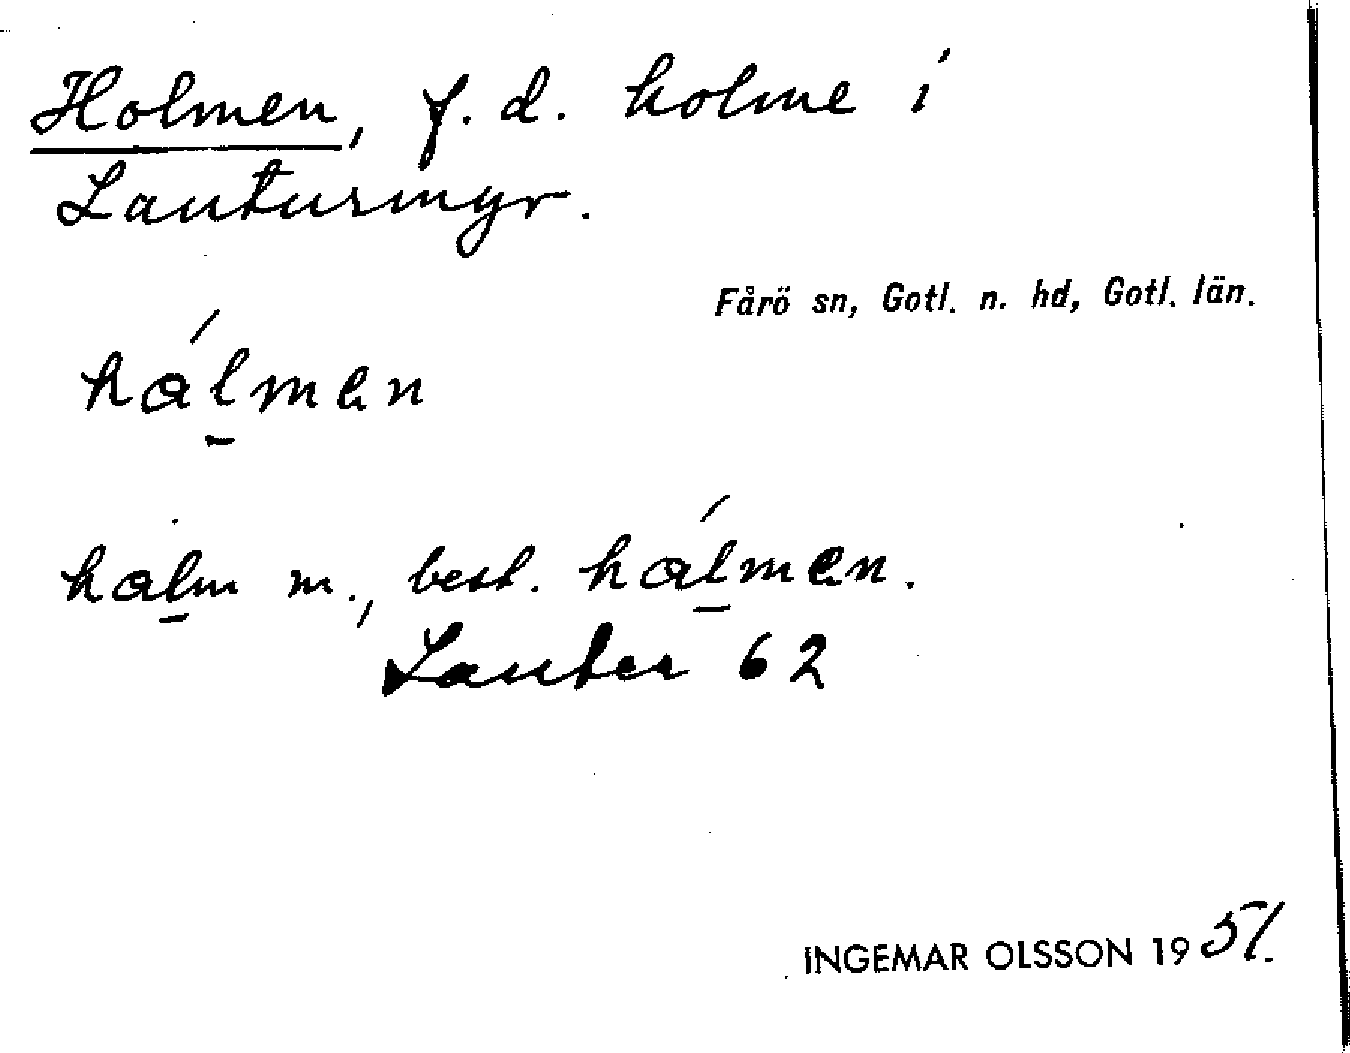 Holmen, f.d. holme i
Lautursmyr.
Fårö sn, Gotl. n. hd, Gotl. län.
háḻmen
haḻm m., best. háḻmen.
Lauter 62
INGEMAR OLSSON 1951.